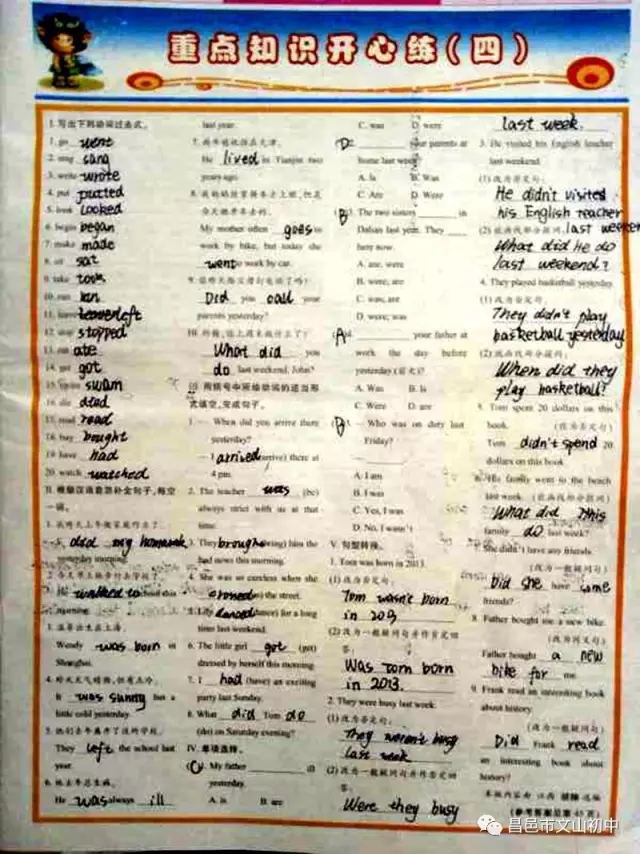 重点知识开心练(四)
I. 写出下列动词过去式。
1. go went
2. sing sang
3. write wrote
4. put putted
5. look looked
6. begin began
7. make made
8. sit sat
9. take took
10. run ran
11. leave left
12. stop stopped
13. eat ate
14. get got
15. swim swam
16. die died
17. read read
18. buy bought
19. have had
20. watch watched
II. 根据汉语意思补全句子，每空一词。
1. 我昨天上午做家庭作业了。
I did my homework
yesterday morning.
He walked to school this
morning.
3. 温蒂出生在上海。
Wendy was born in
Shanghai.
4. 昨天天气晴朗，但有点冷。
It was sunny but a
little cold yesterday.
5. 他们去年离开了这所学校。
They left the school last
year.
6. 他去年总生病。
He was always ill
last year.
He lived in Tianjin two
years ago.
My mother often goes to
work by bike, but today she
went to work by car.
9. 你昨天给父母打电话了吗?
Did you call your
parents yesterday?
10. 约翰，你上周末做什么了?
What did you
do last weekend, John?
III. 用括号中所给动词的适当形
式填空，完成句子。
1. — When did you arrive there
yesterday?
— I arrived (arrive) there at
4 pm.
2. The teacher was (be)
always strict with us at that
time.
3. They brought (bring) him the
bad news this morning.
4. She was so careless when she
crossed the street.
5. Lily danced (dance) for a long
time last weekend.
6. The little girl got (get)
dressed by herself this morning.
7. I had (have) an exciting
party last Sunday.
8. What did Tom do
(do) on Saturday evening?
IV. 单项选择。
My father
yesterday.
A. is B. are
C. was D. were
(D) your parents at
home last week?
A. Is B. Was
C. Are D. Were
(B) 3. The two sisters in
Dalian last year. They
here now.
A. are, were
B. were, are
C. was, are
D. were, was
(A) your father at
work the day before
yesterday (前天)?
A. Was B. Is
C. Were D. are
(B) — Who was on duty last
Friday?
A. I am
B. I was
C. Yes, I was
D. No, I wasn't
V. 句型转换。
1. Tom was born in 2013.
(1) 改为否定句:
Tom wasn't born
in 2013
(2) 改为一般疑问句并作肯定回
答:
Was Tom born
in 2013.
2. They were busy last week.
(1) 改为否定句:
They weren't busy
last week
(2) 改为一般疑问句并作否定回
答:
Were they busy
last week.
3. He visited his English teacher
last weekend.
(1) 改为否定句:
He didn't visited
his English teacher
last weekend
(2) 就画线部分提问:
What did He do
last weekend?
4. They played basketball yesterday.
(1) 改为否定句:
They didn't play
basketball yesterday
(2) 就画线部分提问:
When did they
play basketball?
5. Tom spent 20 dollars on this
book. (改为否定句)
Tom didn't spend 20
dollars on this book.
6. His family went to the beach
last week. (就画线部分提问)
What did this
family do last week?
She didn't have any friends.
(改为一般疑问句)
Did she have some
friends?
8. Father bought me a new bike.
(改为同义句)
Father bought a new
bike for me.
9. Frank read an interesting book
about history.
(改为一般疑问句)
Did Frank read
an interesting book about
history?
昌邑市文山初中